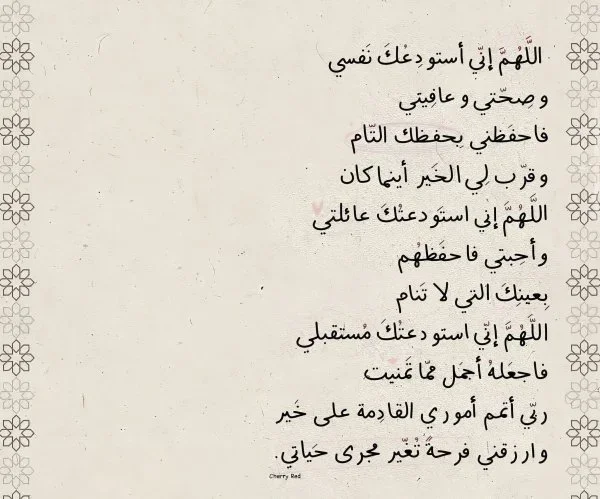 اللَّهُمَّ إنّي أستودِعْكَ نَفسي
و صِحّتي و عافيتي
فاحفَظني بِحفظك التّام
و قرّب لِي الخَير أينما كان
اللَّهُمَّ إنّي استَودعتْكَ عائلتي
و أحِبتي فاحفَظهُم
بِعينِكَ التي لا تَنام
اللَّهُمَّ إنّي استودعتْكَ مُستقبلي
فاجعَلهُ أجمَل ممّا تَمنيت
ربّي أتمم أموري القادِمة على خَير
و ارزقني فرحةً تُغّير مجرى حَياتي.
Cherry Red